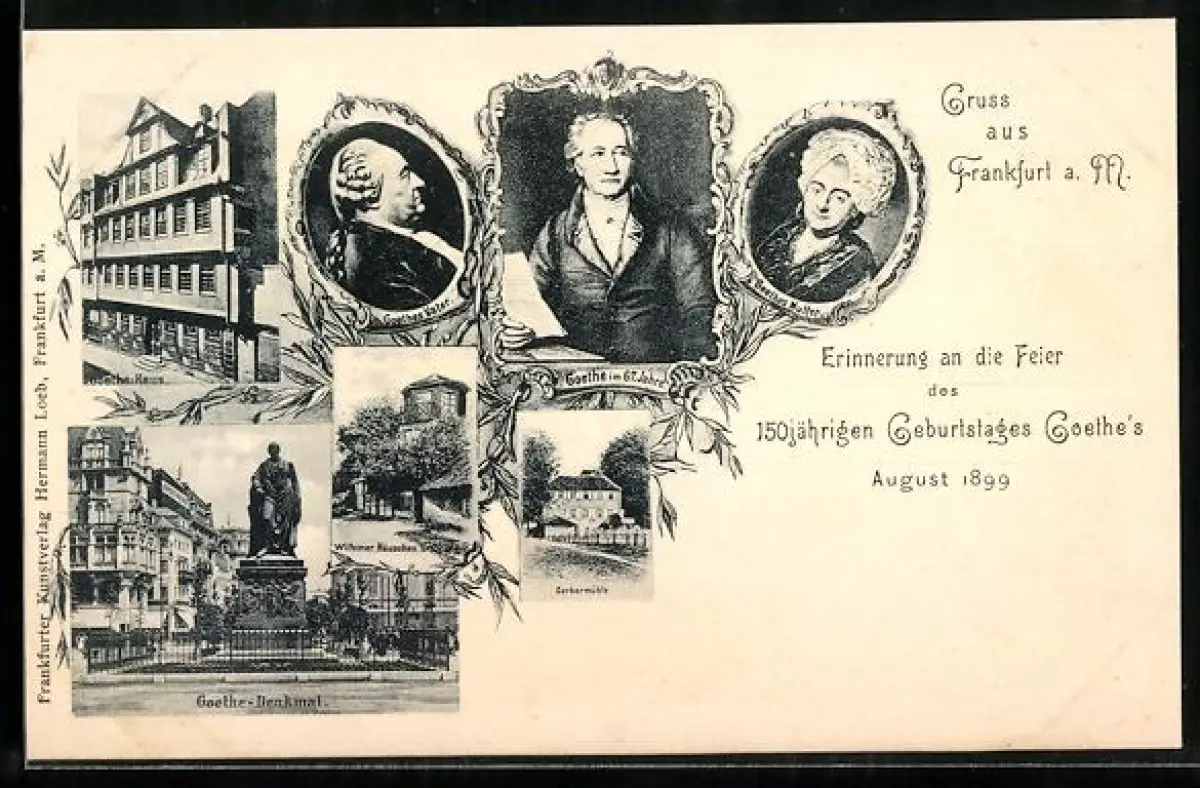 Gruss
aus
Frankfurt a. M.
Erinnerung an die Feier
des
150jährigen Geburtstages Goethe's
August 1899
Goethe-Haus.
Goethes Vater.
Goethe im 67. Jahre
Goethes Mutter.
Willemer Häuschen
Gerbermühle
Goethe-Denkmal.
Frankfurter Kunstverlag Hermann Loeb, Frankfurt a. M.